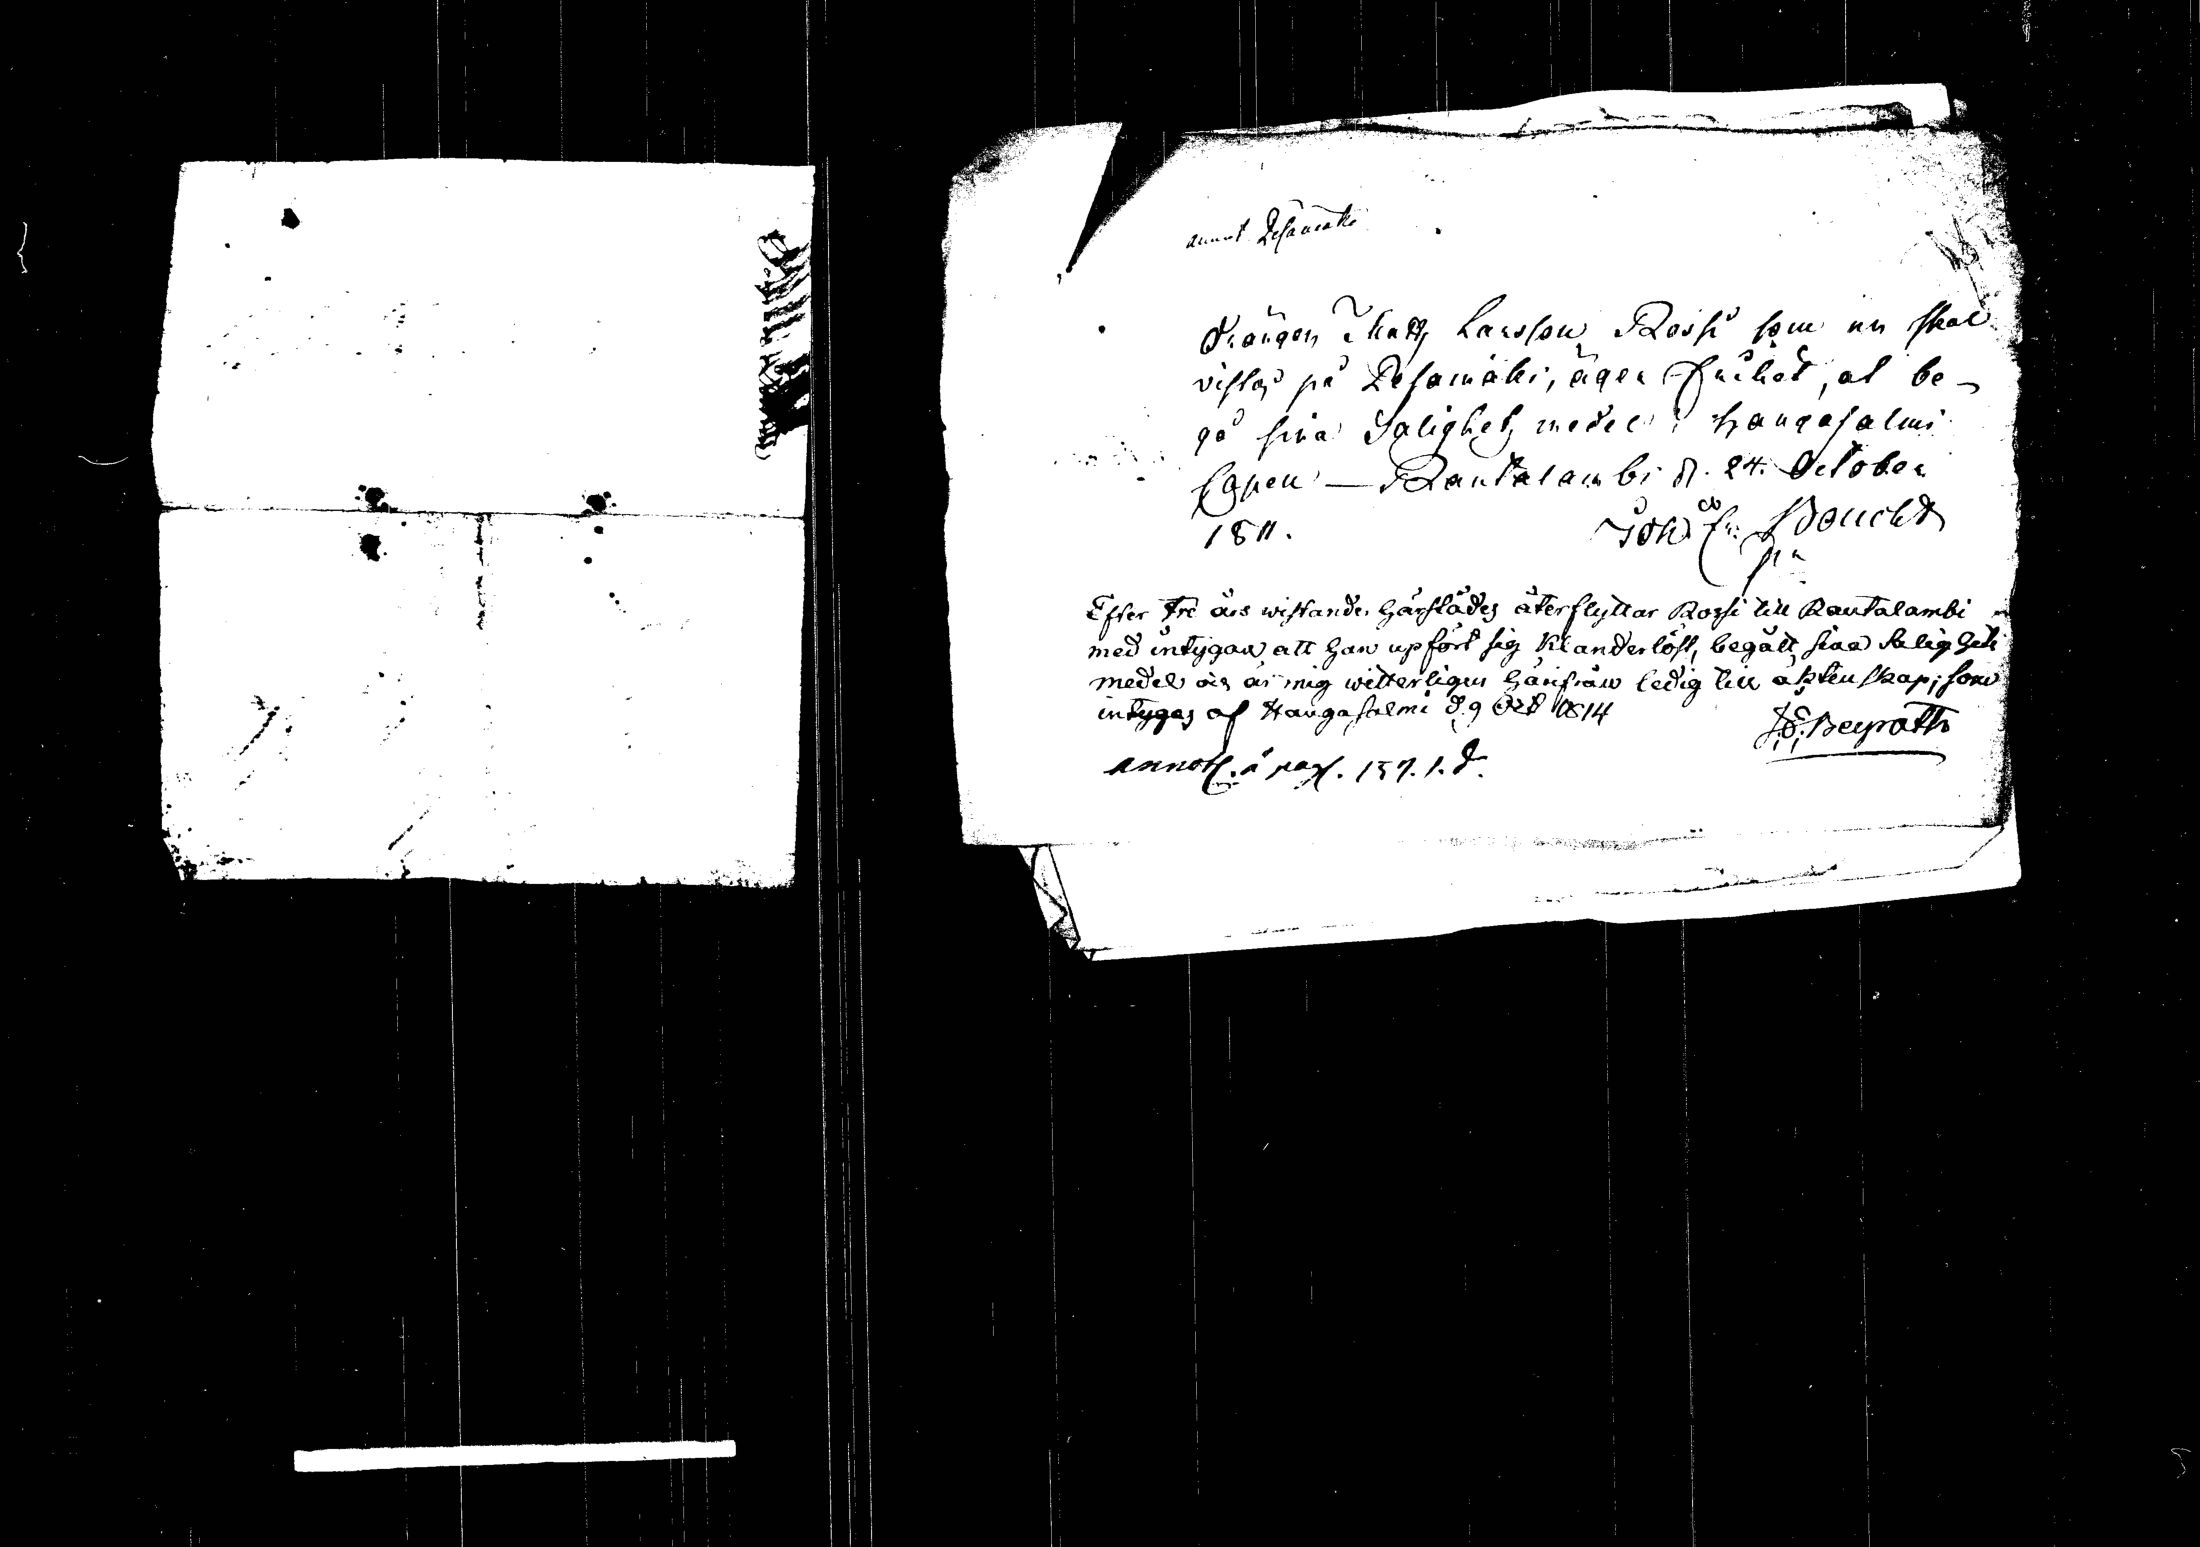 annot Pesämäki
Drängen Matts Larsson Rossi som nu skal
vistas på Pesamäki, äger frihet, at be-
gå sina Salighets medel i Hangasalmi
Capell — Rautalambi d. 24. October
1811. Joh Fr: Boucht
Efter tre års wistande härstädes återflyttar Rossi till Rautalambi
med intygan att han upfört sig klanderlöst, begått sina Salighets
medel och är mig witterligen härifrån ledig till äktenskap; som
intygas af Hangasalmi d. 9 Oct 1814
Beyrath
annot. å pag. 157. 1. d.